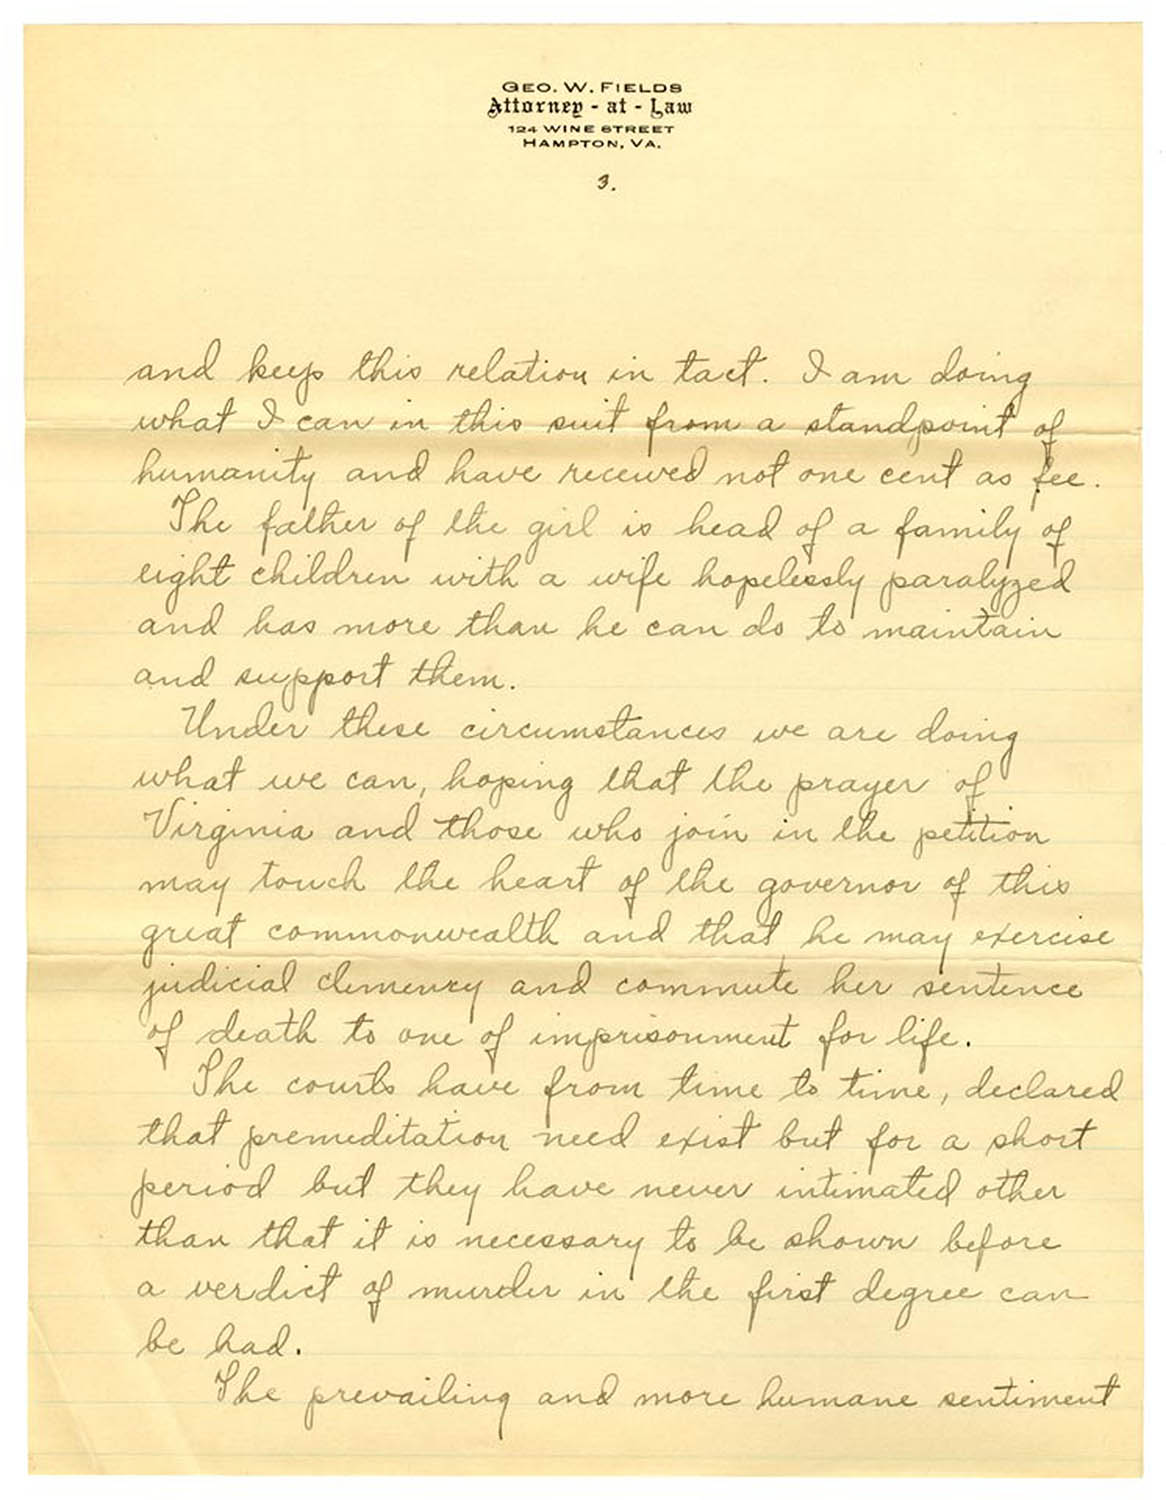 GEO. W. FIELDS
Attorney - at - Law
124 WINE STREET
HAMPTON, VA.
3.
and keep this relation in tact. I am doing
what I can in this suit from a standpoint of
humanity and have received not one cent as fee.
The father of the girl is head of a family of
eight children with a wife hopelessly paralyzed
and has more than he can do to maintain
and support them.
Under these circumstances we are doing
what we can, hoping that the prayer of
Virginia and those who join in the petition
may touch the heart of the governor of this
great commonwealth and that he may exercise
judicial clemency and commute her sentence
of death to one of imprisonment for life.
The courts have from time to time, declared
that premeditation need exist but for a short
period but they have never intimated other
than that it is necessary to be shown before
a verdict of murder in the first degree can
be had.
The prevailing and more humane sentiment